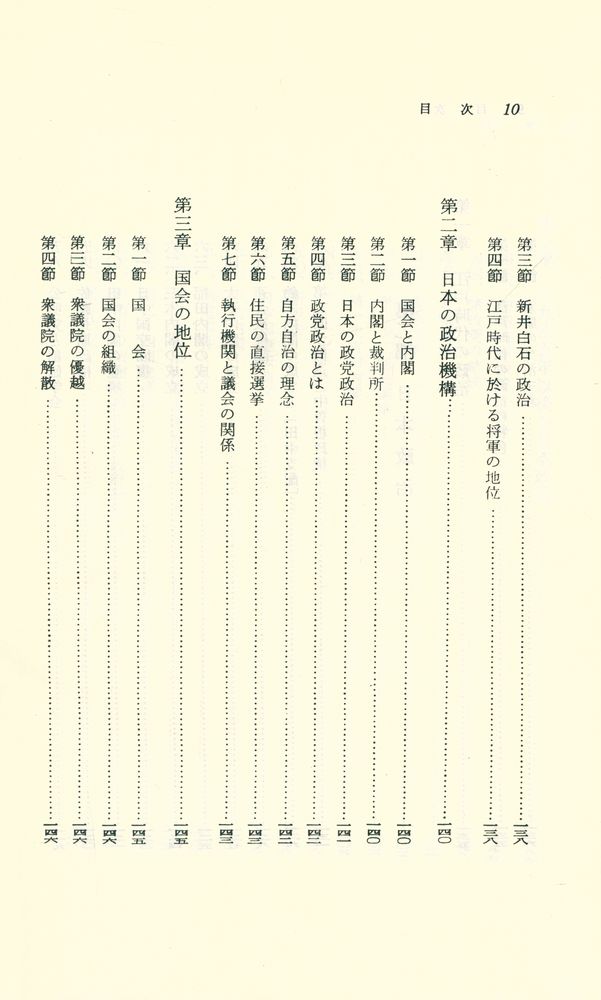 目次 10
第三節 新井白石の政治……一三八
第四節 江戸時代に於ける将軍の地位……一三八
第二章 日本の政治機構……一四〇
第一節 国会と内閣……一四〇
第二節 内閣と裁判所……一四〇
第三節 日本の政党政治……一四一
第四節 政党政治とは……一四二
第五節 自方自治の理念……一四二
第六節 住民の直接選挙……一四三
第七節 執行機関と議会の関係……一四三
第三章 国会の地位……一四五
第一節 国会……一四五
第二節 国会の組織……一四六
第三節 衆議院の優越……一四六
第四節 衆議院の解散……一四六